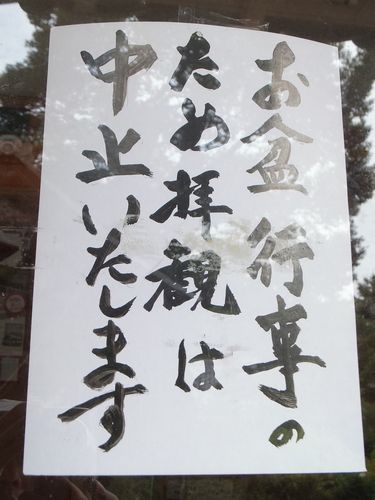 お盆行事の
ため拝観は
中止いたします